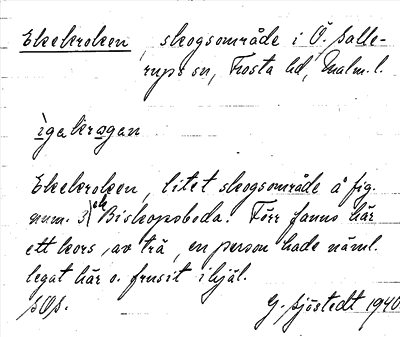 Ekekroken, skogsområde i Ö. Salle-
rups sn, Frosta hd, Malm. l.
ìgakragan
Ekekroken, litet skogsområde å fig.
num. 3 och Biskopsboda. Förr fanns här
ett kors, av trä, en person hade näml.
legat här o. frusit ihjäl.
SOS.
G. Sjöstedt 1940